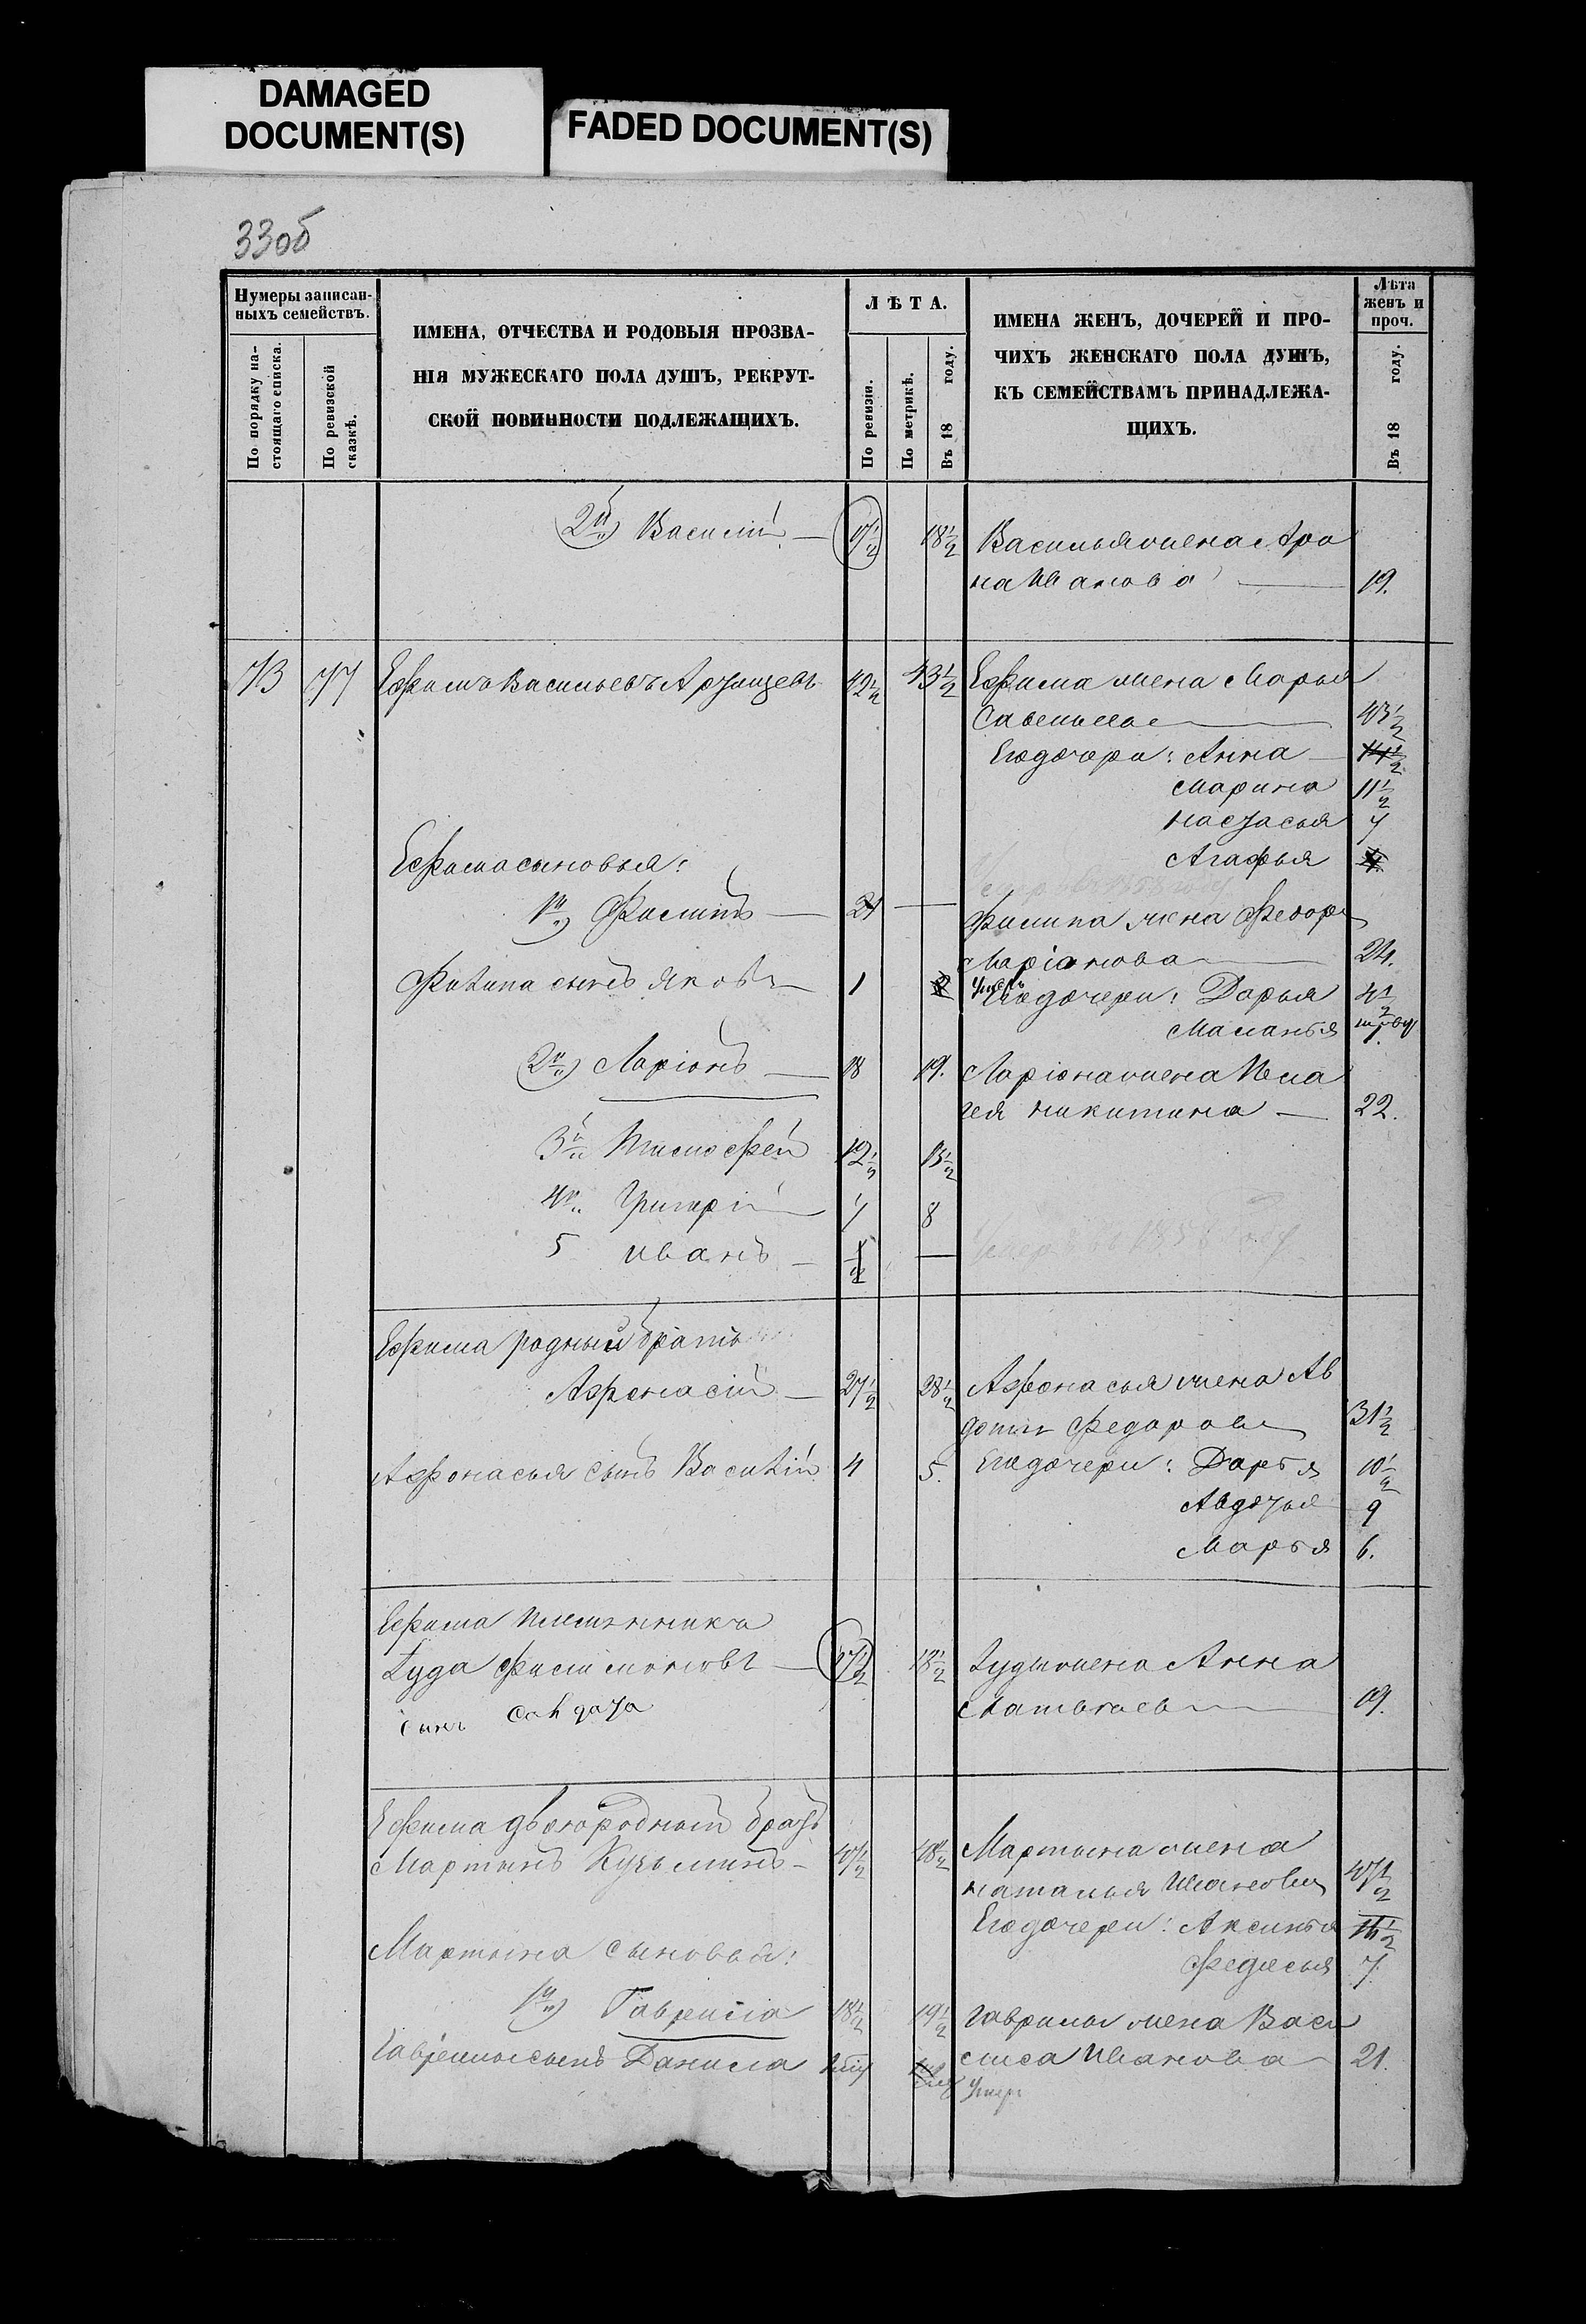 DAMAGED
DOCUMENT(S)
FADED DOCUMENT(S)
33об
Нумеры записан-
ныхъ семействъ.
По порядку на-
стоящаго списка.
По ревизской
сказкѣ.
ИМЕНА, ОТЧЕСТВА И РОДОВЫЯ ПРОЗВА-
НІЯ МУЖЕСКАГО ПОЛА ДУШЪ, РЕКРУТ-
СКОЙ ПОВИННОСТИ ПОДЛЕЖАЩИХЪ.
ЛѢТА.
По ревизіи.
По метрикѣ.
Въ 18 году.
ИМЕНА ЖЕНЪ, ДОЧЕРЕЙ И ПРО-
ЧИХЪ ЖЕНСКАГО ПОЛА ДУШЪ,
КЪ СЕМЕЙСТВАМЪ ПРИНАДЛЕЖА-
ЩИХЪ.
Лѣта
женъ и
проч.
Въ 18 году.
2й Василій — 17½ 18½ Василья жена
Иванова — 19.
73 77 Ефимъ Васильевъ 42½ 43½ Ефима жена Марья
Савельева — 43½
Его дочери: Анна —
Марина 11½
Настасья 7
Ефима сыновья: Агафья
1й Филипъ — 21 — Филипа жена Федора
24.
Филипа сынъ Яковъ — 1 2 Его дочери: Дарья
Маланья
2й Ларіонъ — 18 19. Ларіона жена Пела
гея Никитина — 22.
3й Тимофей 12½ 13½
4й Григорій 7 8
5 Иванъ — ½ — 
Ефима родный братъ
Афонасій — 27½ 28½ Афонасья жена Ав
дотья Федорова 31½
Афонасья сынъ Василій 4 5. Его дочери: Дарья 10½
Авдотья 9
Марья 6.
Ефима племянникъ
Іуда Филимоновъ — 17½ 18½ Іуды жена Анна
Матвѣева 19.
сынъ
Ефима двоюродный братъ
Мартынъ Кузьминъ — 47½ 48½ Мартына жена
Наталья Иванова 47½
Его дочери: Аксинья
Мартына сыновья: Федосья 7
1й Гаврила 18½ 19½ Гаврилы жена Васи
Гаврилы сынъ Данила лиса Иванова 21.
Умеръ